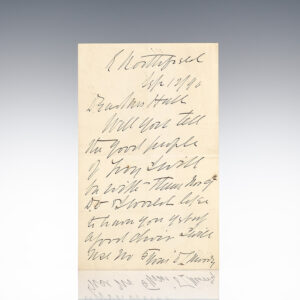 E Northfield
Sep 12/90
Dear Mrs Hall
Will you tell
the good people
of Troy I will
be with them Nov 9
I would like
to have you get up
a good choir I will
use No 5 D L Moody